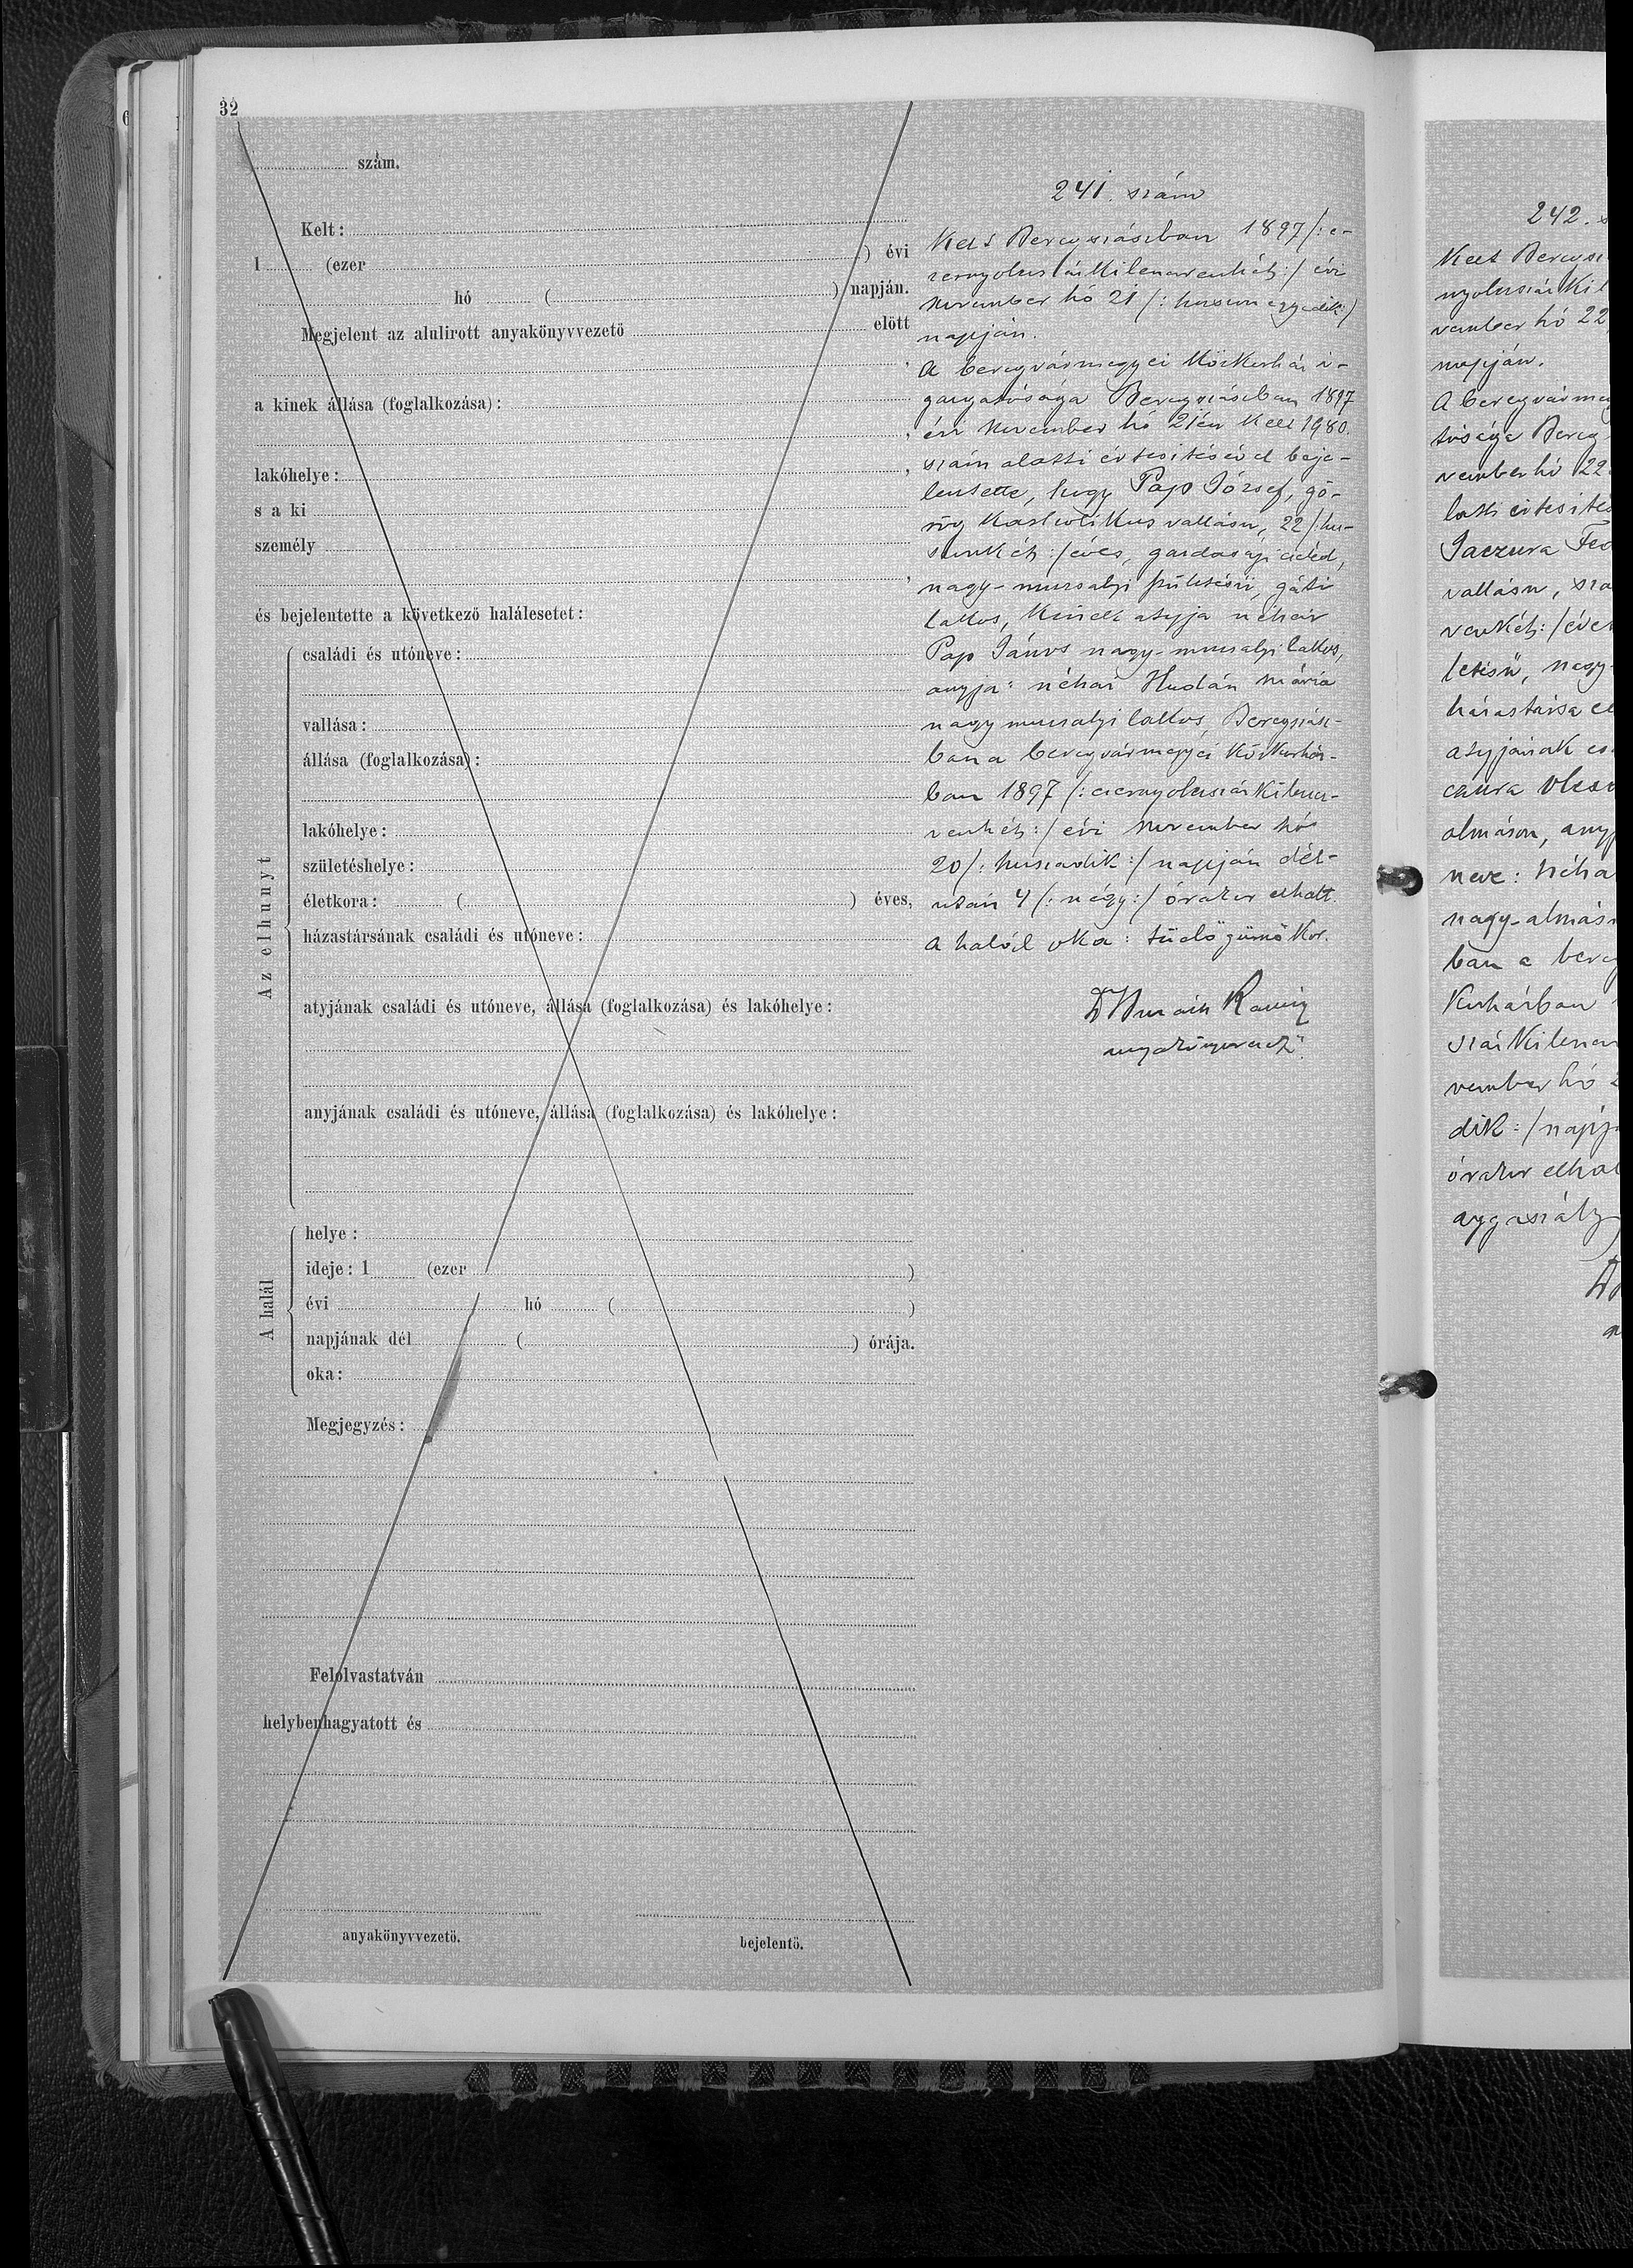 32
szám.
Kelt:
1 (ezer ) évi
hó ( ) napján.
Megjelent az alulirott anyakönyvvezető előtt
a kinek állása (foglalkozása):
lakóhelye:
s a ki
személy
és bejelentette a következő halálesetet:
Az elhunyt
családi és utóneve:
vallása:
állása (foglalkozása):
lakóhelye:
születéshelye:
életkora: ( ) éves,
házastársának családi és utóneve:
atyjának családi és utóneve, állása (foglalkozása) és lakóhelye:
anyjának családi és utóneve, állása (foglalkozása) és lakóhelye:
A halál
helye:
ideje: 1 (ezer )
évi hó ( )
napjának dél ( ) órája.
oka:
Megjegyzés:
Felolvastatván
helybenhagyatott és
anyakönyvvezető.
bejelentő.
241. szám
Kelt Beregszászban 1897 /: e-
zernyolcszázkilencvenhét :/ évi
november hó 21 /: huszonegyedik :/
napján.
A beregvármegyei közkórház i-
gazgatósága Beregszászban 1897
évi november hó 21én kelt 1980.
szám alatti értesitésével beje-
lentette, hogy Pap József, gö-
rög katholikus vallásu, 22 /: hu-
szonkét :/ éves, gazdasági cseléd,
nagy-muzsalyi születésü, gáti
lakos, kinek atyja néhai
Pap János nagy-muzsalyi lakos,
anyja: néhai Hudán Mária
nagymuzsalyi lakos, Beregszász-
ban a beregvármegyei közkórház-
ban 1897 /: ezernyolcszázkilenc-
venhét :/ évi november hó
20 /: huszadik :/ napján dél-
után 4 /: négy :/ órakor elhalt.
A halál oka: tüdőgümőkór.
anyakönyvvezető.
242.
Kelt Beregsz
nyolcszázkil
vember hó 22
napján.
A beregvármeg
tósága Bereg
vember hó 22
latti értesités
vallásu,
venkét :/ éves
letésü, nagy-
házastársa
atyjának
almáson, any
neve: néha
nagy-almás
ban a bereg
kórházban
százkilencv
vember hó 2
dik :/ napj
órakor elhal
aggaszály